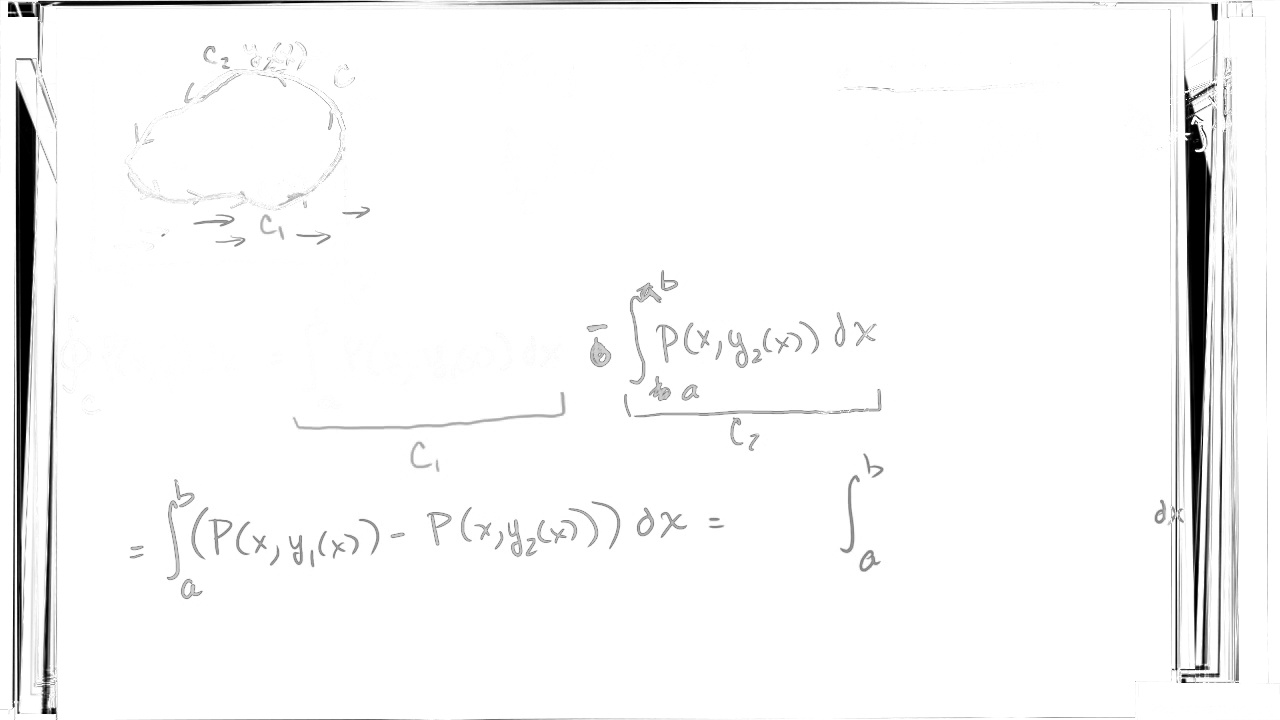 C₂ y₂(x) C
C₁
− ∫ₐᵇ P(x, y₂(x)) dx
C₁ C₂
= ∫ₐᵇ (P(x, y₁(x)) − P(x, y₂(x))) dx = ∫ₐᵇ dx